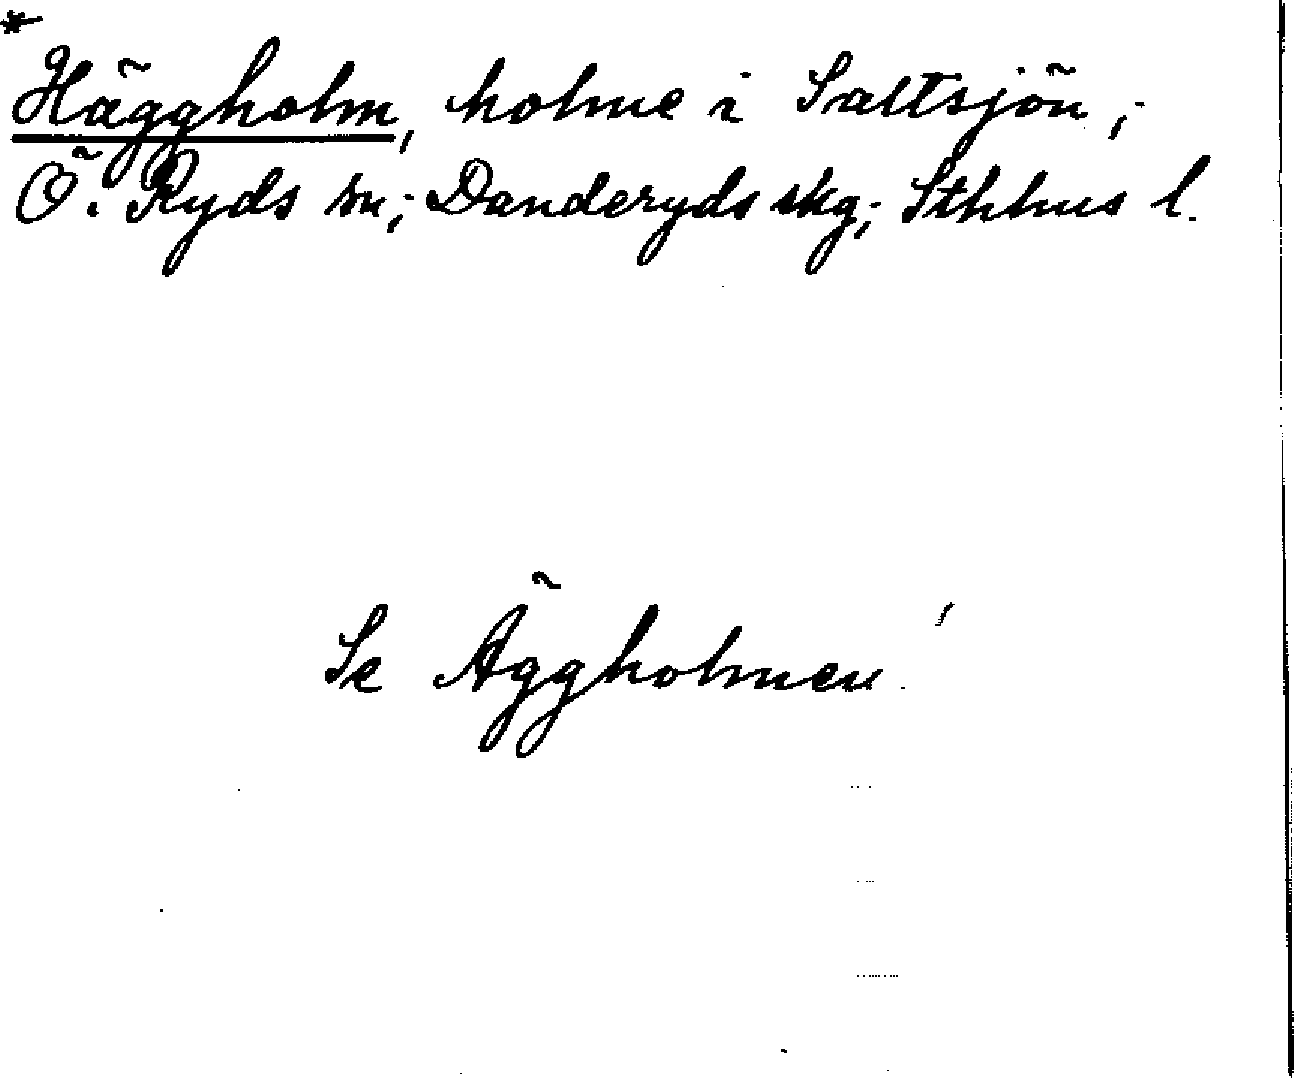 *
Häggholm, holme i Saltsjön;
Ö. Ryds sn; Danderyds skg; Sthlms l.
Se Äggholmen!